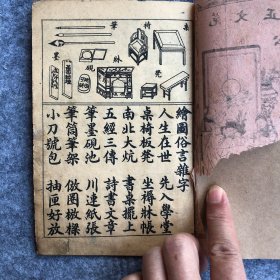 桌 椅 筆
硯 牀 凳 墨
繪圖俗言雜字
人生在世 先入學堂
桌椅板凳 坐褥牀帳
南北大炕 書桌擺上
五經三傳 詩書文章
筆墨硯池 川連紙張
筆筒筆架 圈 樣
小刀號包 抽匣好放